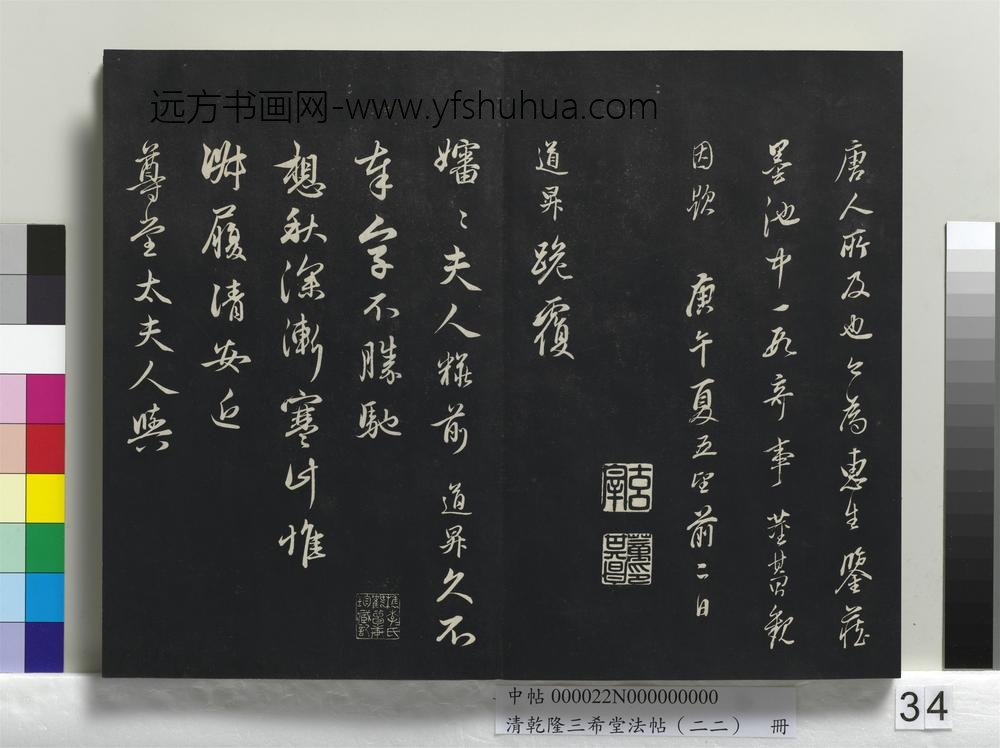 远方书画网-www.yfshuhua.com
唐人所及也今为惠生鉴藏
墨池中一段奇事 董其昌观
因题 庚午夏五望前二日
道昇跪覆
婶〻夫人妆前 道昇久不
奉字不胜驰
想秋深渐寒计惟
淑履清安近
尊堂太夫人与
中帖 000022N000000000
清乾隆三希堂法帖（二二） 冊
34